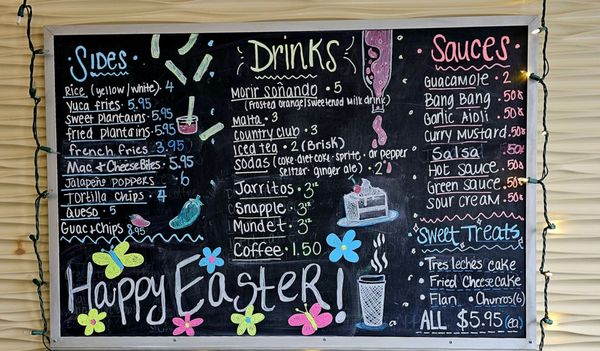 Sides
Rice (yellow/white) 4
Yuca fries • 5.95
sweet plantains • 5.95
fried plantains • 5.95
french fries • 3.95
Mac + Cheese Bites • 5.95
Jalapeño poppers • 6
Tortilla chips • 4
Queso • 5
Guac + chips 8.95
Drinks
Morir soñando • 5
(frosted orange/sweetened milk drink)
Malta • 3
Country club • 3
Iced tea • 2 (Brisk)
Sodas (coke • diet coke • sprite • dr pepper
seltzer ginger ale) • 2
Jarritos •
Snapple •
Mundet •
Coffee • 1.50
Sauces
Guacamole • 2
Bang Bang • .50¢
Garlic Aioli • .50¢
Curry Mustard • .50¢
Salsa • .50¢
Hot Sauce • .50¢
Green Sauce • .50¢
sour cream • .50¢
Sweet Treats
• Tres leches cake
• Fried Cheesecake
• Flan • Churros (6)
ALL $5.95 (ea)
Happy Easter!